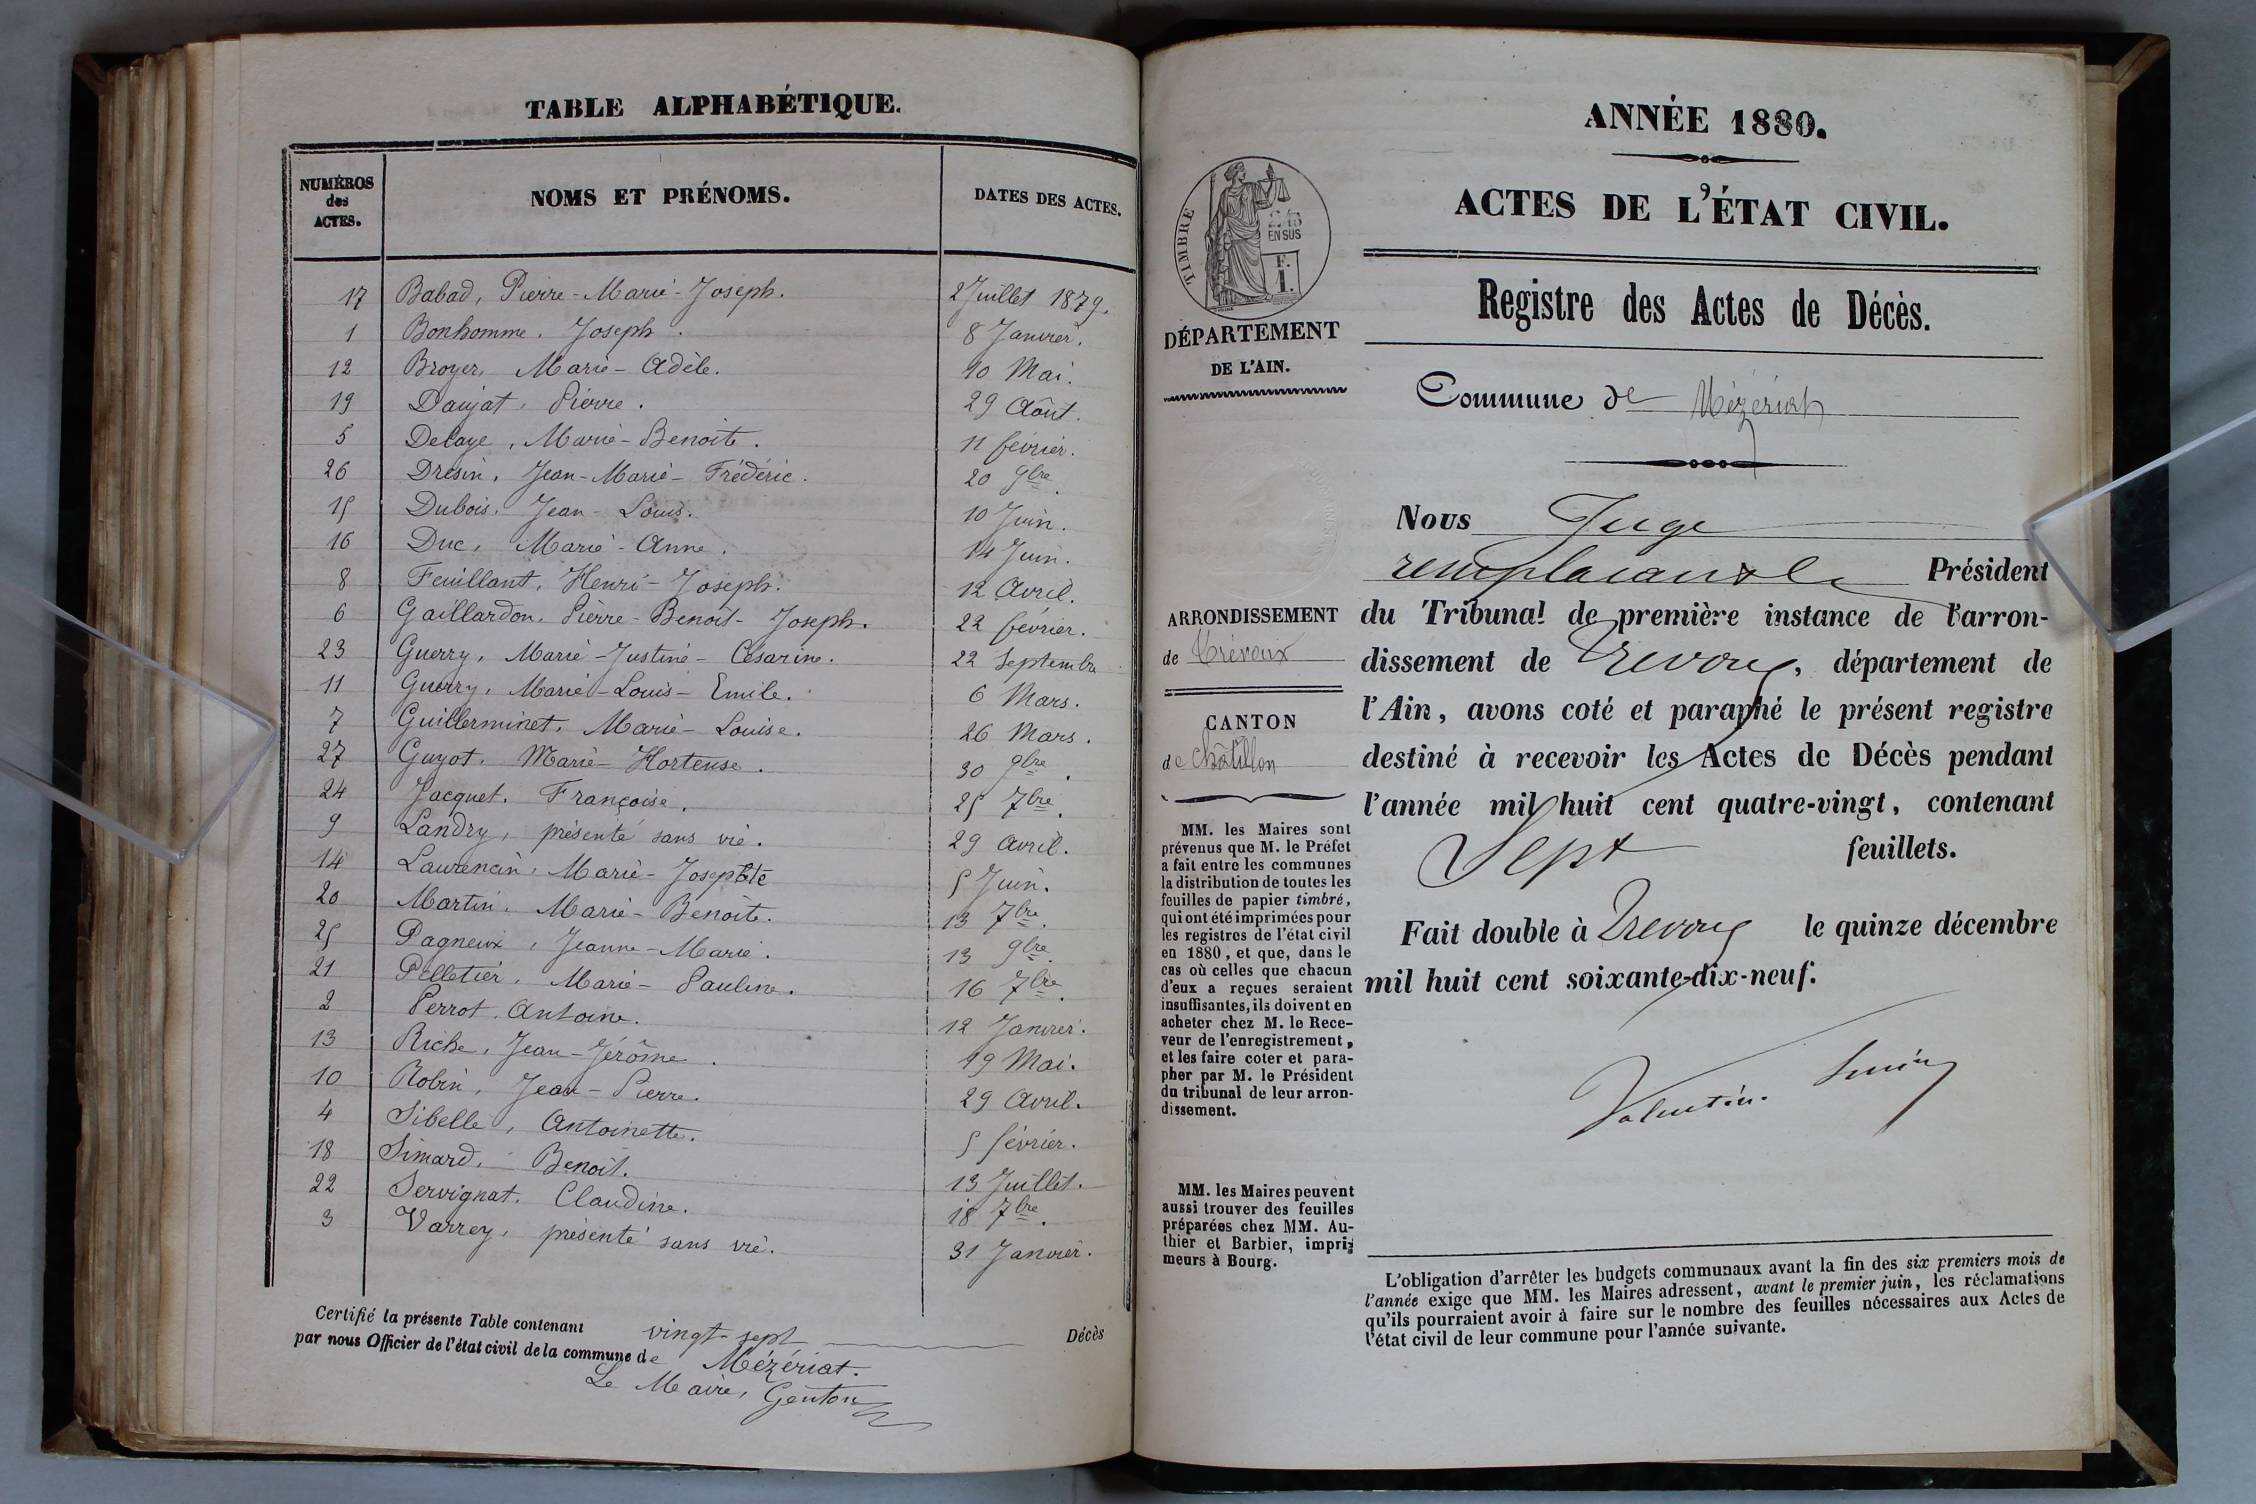 TABLE ALPHABÉTIQUE.
NUMÉROS des ACTES. NOMS ET PRÉNOMS. DATES DES ACTES.
17 Babad, Pierre-Marie-Joseph. 2 Juillet 1879.
1 Bonhomme, Joseph. 8 Janvier.
12 Broyer, Marie-Adèle. 10 Mai.
19 Daujat, Pierre. 29 Août.
5 Delaye, Marie-Benoite. 11 février.
26 Dresin, Jean-Marie-Frédéric. 20 9bre.
15 Dubois, Jean-Louis. 10 Juin.
16 Duc, Marie-Anne. 14 Juin.
8 Feuillant, Henri-Joseph. 12 Avril.
6 Gaillardon, Pierre-Benoit-Joseph. 22 février.
23 Guerry, Marie-Justine-Césarine. 22 Septembre
11 Guerry, Marie-Louis-Emile. 6 Mars.
7 Guillerminet, Marie-Louise. 26 Mars.
27 Guyot, Marie-Hortense. 30 9bre.
24 Jacquet, Françoise. 25 7bre.
9 Landry, présenté sans vie. 29 Avril.
14 Laurencin, Marie-Josephte 5 Juin.
20 Martin, Marie-Benoite. 13 7bre.
25 Pagneux, Jeanne-Marie. 13 9bre.
21 Pelletier, Marie-Pauline. 16 7bre.
2 Perrot, Antoine. 12 Janvier.
13 Riche, Jean-Jérôme. 19 Mai.
10 Robin, Jean-Pierre. 29 Avril.
4 Sibelle, Antoinette. 5 février.
18 Simard, Benoit. 13 Juillet.
22 Servignat, Claudine. 18 7bre.
3 Varrey, présenté sans vie. 31 Janvier.
Certifié la présente Table contenant vingt-sept Décès
par nous Officier de l'état civil de la commune de Mézériat.
Le Maire, Genton
ANNÉE 1880.
ACTES DE L'ÉTAT CIVIL.
Registre des Actes de Décès.
Commune de Mézériat
TIMBRE
2/10
EN SUS
F.
1.
DÉPARTEMENT
DE L'AIN.
ARRONDISSEMENT
de Trévoux
CANTON
de Châtillon
MM. les Maires sont
prévenus que M. le Préfet
a fait entre les communes
la distribution de toutes les
feuilles de papier timbré,
qui ont été imprimées pour
les registres de l'état civil
en 1880, et que, dans le
cas où celles que chacun
d'eux a reçues seraient
insuffisantes, ils doivent en
acheter chez M. le Rece-
veur de l'enregistrement,
et les faire coter et para-
pher par M. le Président
du tribunal de leur arron-
dissement.
MM. les Maires peuvent
aussi trouver des feuilles
préparées chez MM. Au-
thier et Barbier, impri-
meurs à Bourg.
Nous Juge
remplaçant le Président
du Tribunal de première instance de l'arron-
dissement de Trevoux, département de
l'Ain, avons coté et paraphé le présent registre
destiné à recevoir les Actes de Décès pendant
l'année mil huit cent quatre-vingt, contenant
Sept feuillets.
Fait double à Trevoux le quinze décembre
mil huit cent soixante-dix-neuf.
Valentin Smith
L'obligation d'arrêter les budgets communaux avant la fin des six premiers mois de
l'année exige que MM. les Maires adressent, avant le premier juin, les réclamations
qu'ils pourraient avoir à faire sur le nombre des feuilles nécessaires aux Actes de
l'état civil de leur commune pour l'année suivante.